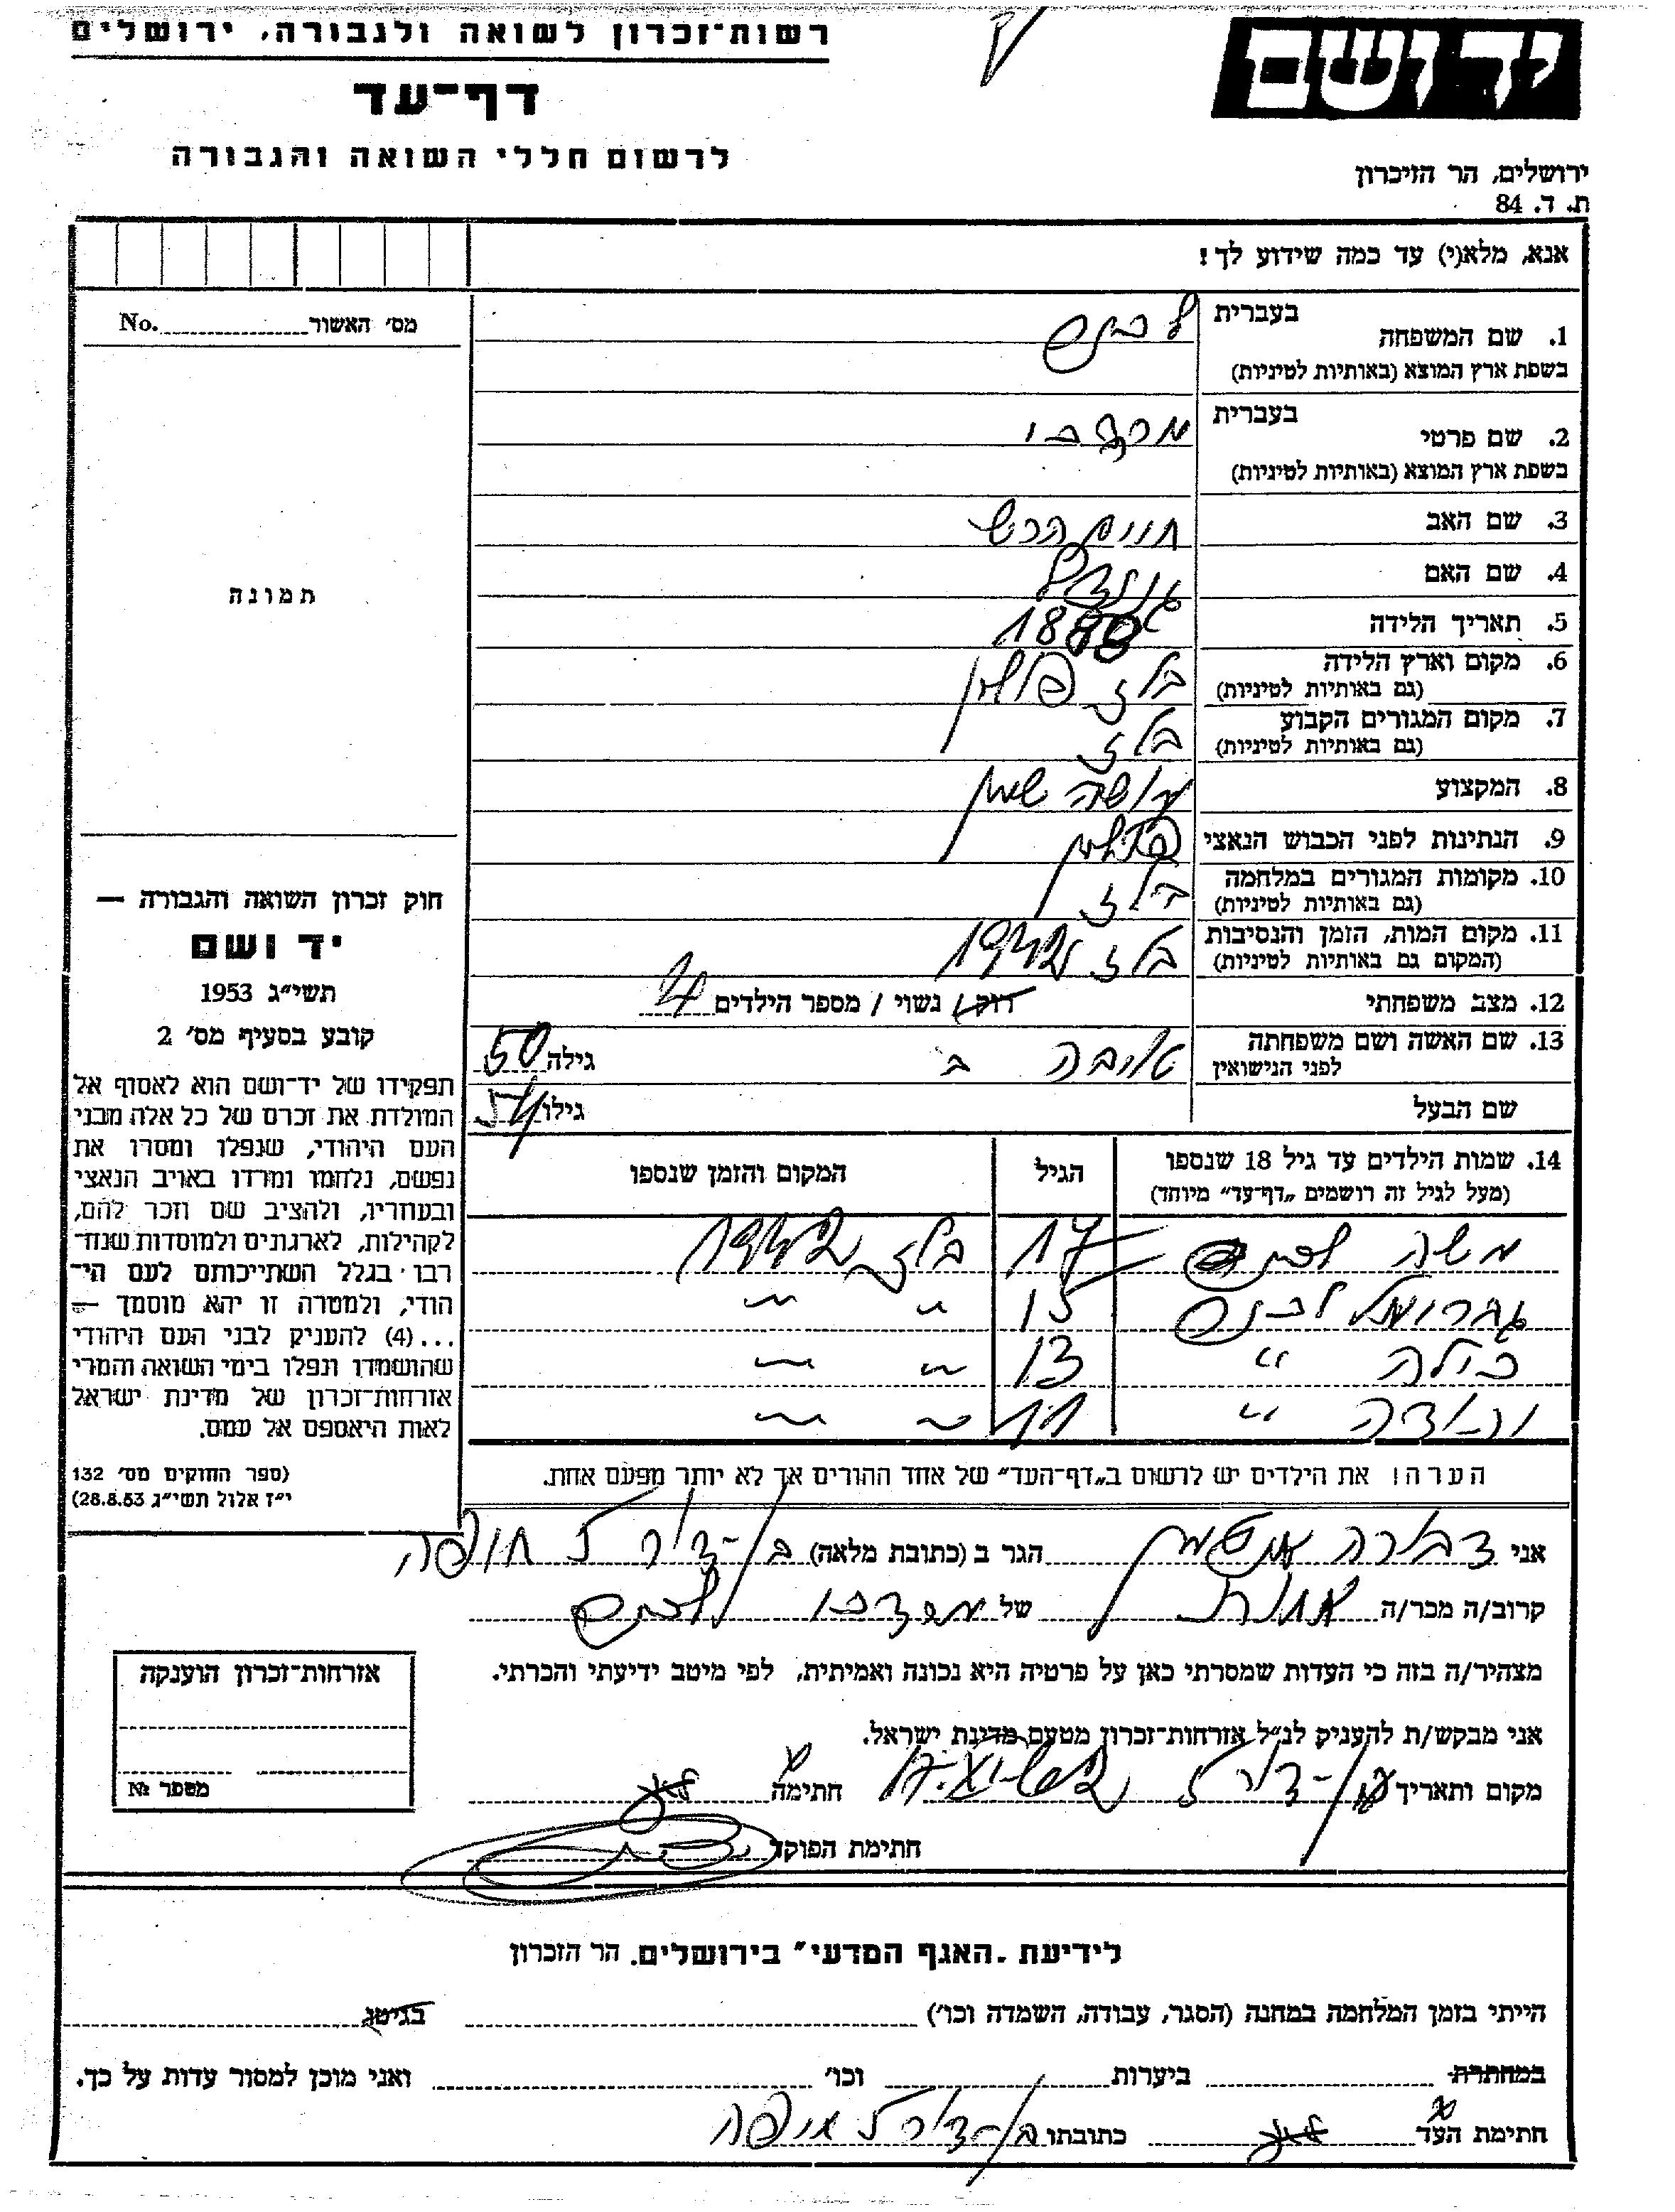 רשות־זכרון לשואה ולגבורה, ירושלים
דף־עד
לרשום חללי השואה והגבורה
יד ושם
ירושלים, הר הזיכרון
ת. ד. 84
אנא, מלא(י) עד כמה שידוע לך!
מס׳ האשור No.
תמונה
1. שם המשפחה בעברית
בשפת ארץ המוצא (באותיות לטיניות)
2. שם פרטי בעברית מרדכי
בשפת ארץ המוצא (באותיות לטיניות)
3. שם האב חיים הרש
4. שם האם
5. תאריך הלידה
6. מקום וארץ הלידה בלז פולין
(גם באותיות לטיניות)
7. מקום המגורים הקבוע בלז
(גם באותיות לטיניות)
8. המקצוע עושה שמן
9. הנתינות לפני הכבוש הנאצי פולין
10. מקומות המגורים במלחמה בלז
(גם באותיות לטיניות)
11. מקום המות, הזמן והנסיבות בלז 1942
(המקום גם באותיות לטיניות)
12. מצב משפחתי רווק / נשוי / מספר הילדים 4
13. שם האשה ושם משפחתה טויבה גילה 50
לפני הנישואין
שם הבעל גילו 54
14. שמות הילדים עד גיל 18 שנספו הגיל המקום והזמן שנספו
(מעל לגיל זה רושמים „דף־עד״ מיוחד)
משה 17 בלז 1942
15 ״ ״
בילה ״ 13 ״ ״
״ 11 ״ ״
הערה: את הילדים יש לרשום ב„דף־העד״ של אחד ההורים אך לא יותר מפעם אחת.
חוק זכרון השואה והגבורה —
יד ושם
תשי״ג 1953
קובע בסעיף מס׳ 2
תפקידו של יד־ושם הוא לאסוף אל
המולדת את זכרם של כל אלה מבני
העם היהודי, שנפלו ומסרו את
נפשם, נלחמו ומרדו באויב הנאצי
ובעוזריו, ולהציב שם וזכר להם,
לקהילות, לארגונים ולמוסדות שנח־
רבו בגלל השתייכותם לעם הי־
הודי, ולמטרה זו יהא מוסמך —
...(4) להעניק לבני העם היהודי
שהושמדו ונפלו בימי השואה והמרי
אזרחות־זכרון של מדינת ישראל
לאות היאספם אל עמם.
(ספר החוקים מס׳ 132
י״ז אלול תשי״ג 28.8.53)
אני דבורה הגר ב (כתובת מלאה) חיפה
קרוב/ה מכר/ה אחות של מרדכי
מצהיר/ה בזה כי העדות שמסרתי כאן על פרטיה היא נכונה ואמיתית, לפי מיטב ידיעתי והכרתי.
אני מבקש/ת להעניק לנ״ל אזרחות־זכרון מטעם מדינת ישראל.
מקום ותאריך חתימה
חתימת הפוקד
אזרחות־זכרון הוענקה
מספר №
לידיעת „האגף המדעי״ בירושלים. הר הזכרון
הייתי בזמן המלחמה במחנה (הסגר, עבודה, השמדה וכו׳) בגיטו
במחתרת ביערות וכו׳ ואני מוכן למסור עדות על כך.
חתימת העד כתובתו חיפה